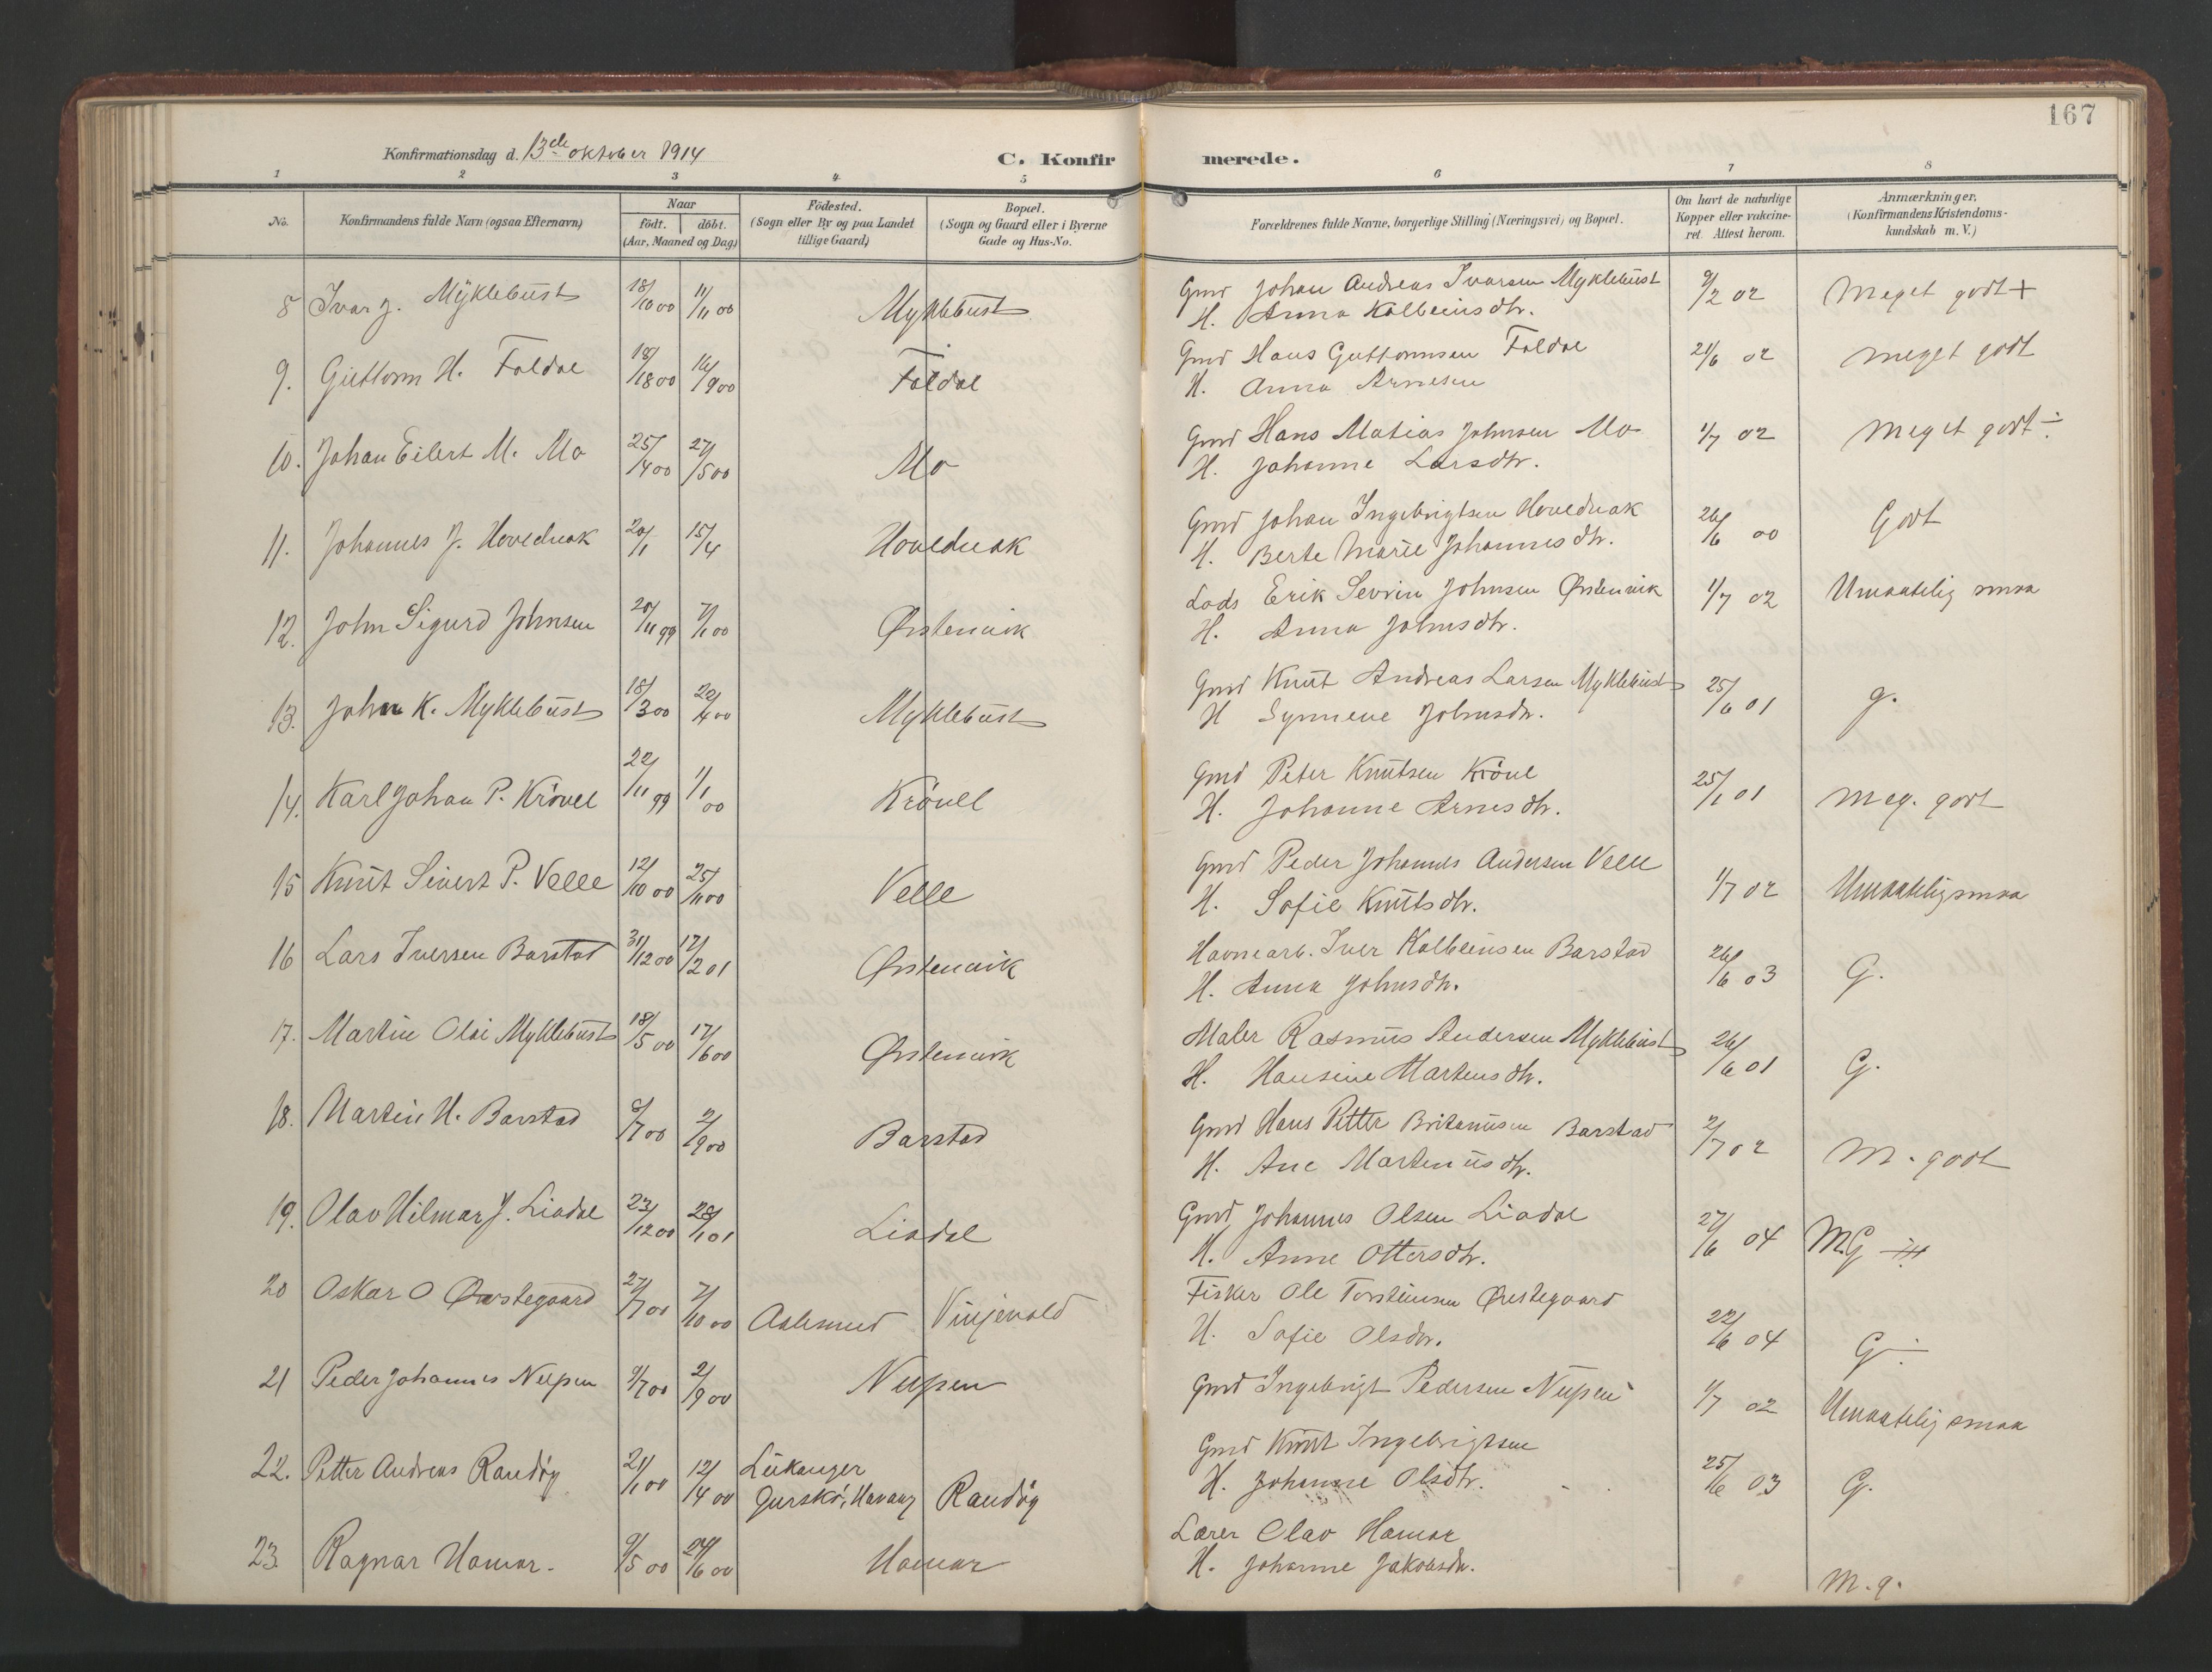 167
Konfirmationsdag d. 13de oktober 1914
C. Konfirmerede.
1 2 3 4 5 6 7 8
No. Konfirmandens fulde Navn (ogsaa Efternavn) Naar födt. döbt. (Aar, Maaned og Dag) Födested. (Sogn eller By og paa Landet tillige Gaard) Bopæl. (Sogn og Gaard eller i Byerne Gade og Hus-No. Forældrenes fulde Navne, borgerlige Stilling (Næringsvei) og Bopæl. Om havt de naturlige Kopper eller vakcineret. Attest herom. Anmærkninger. (Konfirmandens Kristendomskundskab m. V.)
8 Ivar J. Myklebust 18/10 00 11/11 00 Myklebust Gmd Johan Andreas Ivarsen Myklebust 9/2 02 Meget godt +
H. Anna Kolbeinsdtr.
9. Guttorm H. Foldal 18/8 00 16/9 00 Foldal Gmd Hans Guttormsen Foldal 21/6 02 meget godt
H. Anna Arnesen
10. Johan Eilert M. Mo 25/4 00 27/5 00 Mo Gmd Hans Matias Johnsen Mo 1/7 02 meget godt ÷
H. Johanne Larsdtr.
11. Johannes J. Hovednak 20/1 15/4 Hovednak Gmd Johan Ingebrigtsen Hovednak 26/6 00 Godt
H. Berte Marie Johannesdtr.
12. John Sigurd Johnsen 20/11 99 7/1 00 Ørstenvik Lods Erik Sevrin Johnsen Ørstenvik 1/7 02 Umaatelig smaa
H. Anna Johnsdtr.
13. John K. Myklebust 18/3 00 22/4 00 Myklebust Gmd Knut Andreas Larsen Myklebust 25/6 01 g.
H Synneve Johnsdtr.
14. Karl Johan P. Krövel 22/11 99 1/1 00 Krövel Gmd Peter Knutsen Krövel 25/1 01 Meg. godt
H. Johanne Arnesdtr.
15 Knut Sivert P. Velle 12/10 00 25/11 00 Velle Gmd Peder Johannes Andersen Velle 1/7 02 Umaatelig smaa
H. Sofie Knutsdtr.
16 Lars Iversen Barstad 31/12 00 17/2 01 Ørstenvik Havnearb. Iver Kolbeinsen Barstad 26/6 03 G.
H. Anna Johnsdtr.
17. Martin Olai Myklebust 18/5 00 17/6 00 Ørstenvik Maler Rasmus Andersen Myklebust 26/6 01 G.
H. Hansine Martensdtr.
18. Martin H. Barstad 6/7 00 2/9 00 Barstad Gmd Hans Petter Britanusen Barstad 2/7 02 M. godt
H. Ane Martinusdtr.
19. Olav Hilmar J. Liadal 23/12 00 28/1 01 Liadal Gmd Johannes Olsen Liadal 27/6 04 M.G
H. Anne Ottersdtr.
20 Oskar O Øvstegaard 27/7 00 7/10 00 Aalesund Vinjevold Fisker Ole Torsteinsen Øvstegaard 22/6 04 G ÷
H. Sofie Olsdtr.
21 Peder Johannes Nupen 9/7 00 2/9 00 Nupen Gmd Ingebrigt Pedersen Nupen 1/7 02 Umaatelig smaa
22. Petter Andreas Randöy 21/1 00 12/4 00 Leikanger Gurskö, Randöy Gmd Knut Ingebrigtsen 25/6 03 G.
H. Johanne Olsdtr.
23. Ragnar Hamar. 9/5 00 24/6 00 Hamar Lærer Olav Hamar M. g.
H. Johanne Jakobsdtr.